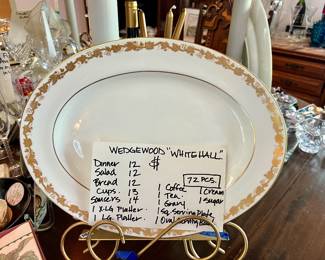 WEDGEWOOD "WHITEHALL"
Dinner 12 $
Salad 12
Bread 12
Cups. 13
Saucers 14
1 X-LG Platter.
1 LG. Platter.
72 PCS.
1 Coffee 1 Cream
1 Tea 1 Sugar
1 Gravy
1 Sq. Serving Plate
1 Oval Serving